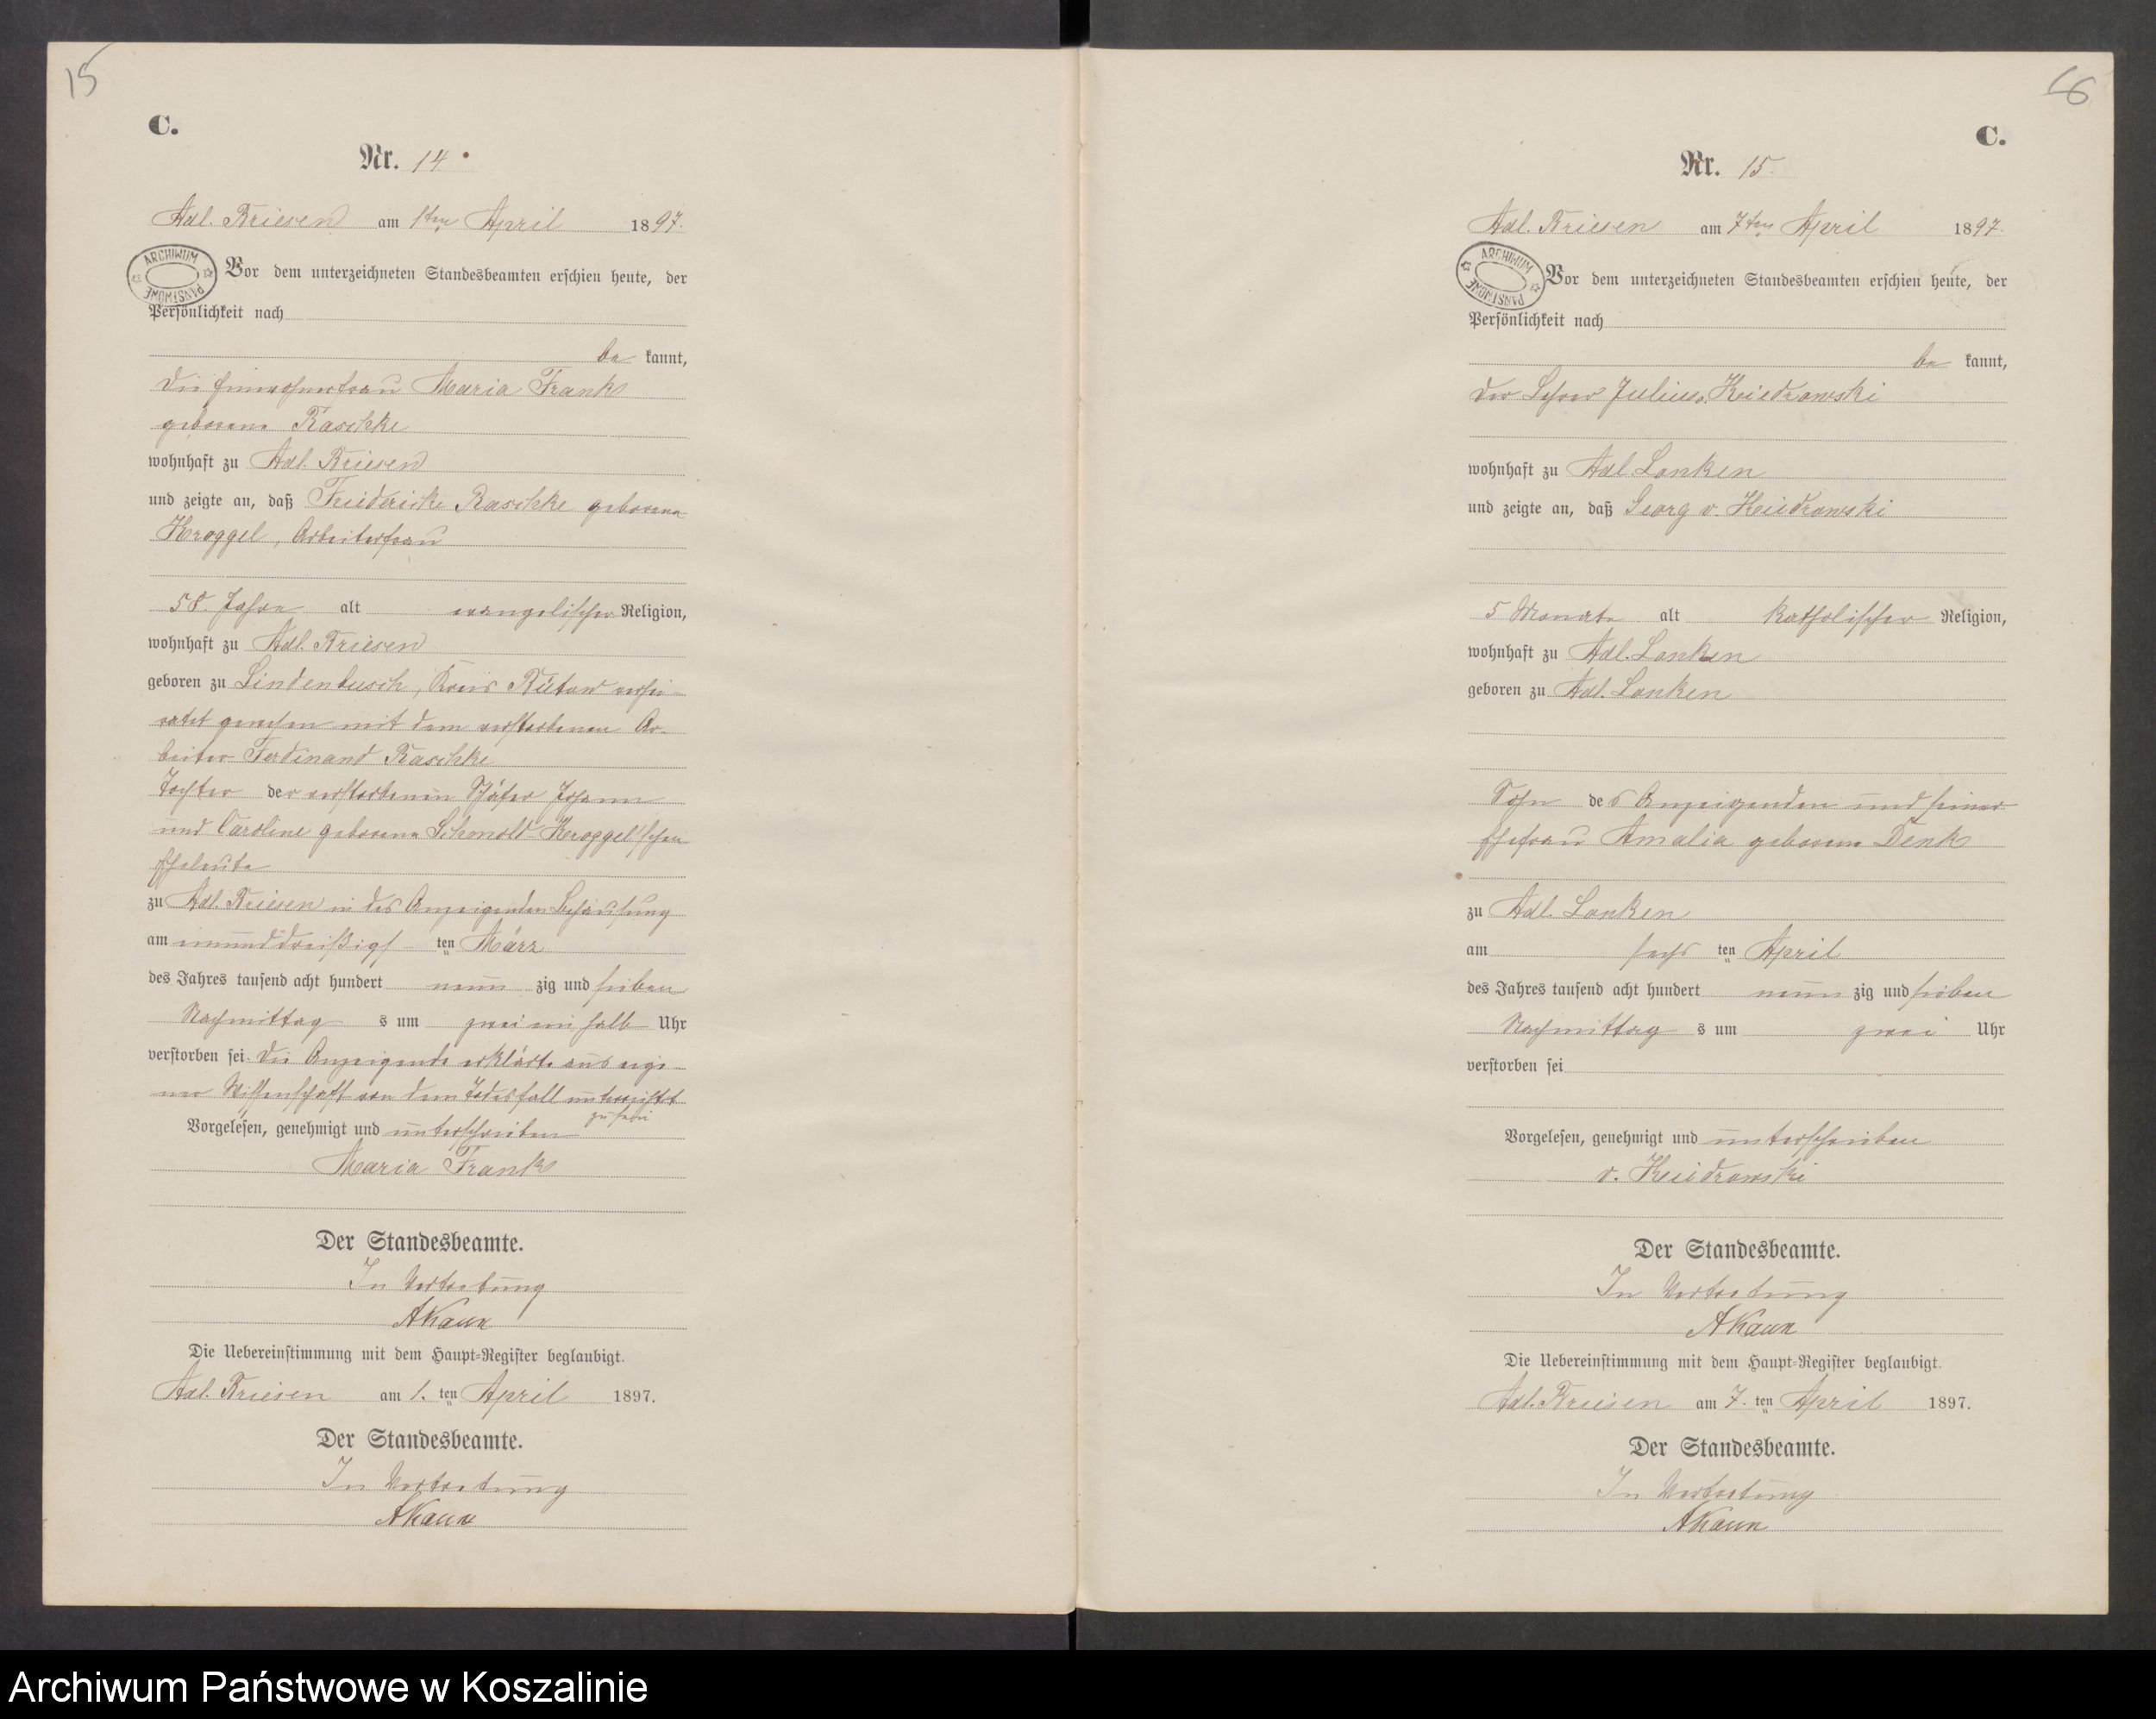 15
C.
Nr. 14.
Adl. Briesen am 1ten April 1897.
ARCHIWUM PAŃSTWOWE
Vor dem unterzeichneten Standesbeamten erschien heute, der
Persönlichkeit nach
be kannt,
die Einwohnerfrau Maria Frank
geborene Raschke
wohnhaft zu Adl. Briesen
und zeigte an, daß Friedericke Raschke geborene
Kroggel, Arbeiterfrau
58 Jahre alt evangelischer Religion,
wohnhaft zu Adl. Briesen
geboren zu Lindenbusch, Kreis Bütow verhei-
ratet gewesen mit dem verstorbenen Ar-
beiter Ferdinand Raschke
Tochter der verstorbenen Schäfer Johann
und Caroline geborene Schmolt Kroggel'schen
Eheleute
zu Adl. Briesen in des Anzeigenden Behausung
am einunddreißigs ten März
des Jahres tausend acht hundert neun zig und sieben
Nachmittag s um zwei ein halb Uhr
verstorben sei. Die Anzeigende erklärte aus eige-
ner Wissenschaft von dem Todesfall unterrichtet
zu sein
Vorgelesen, genehmigt und unterschrieben
Maria Frank
Der Standesbeamte.
In Vertretung
AKaun
Die Uebereinstimmung mit dem Haupt-Register beglaubigt.
Adl. Briesen am 1. ten April 1897.
Der Standesbeamte.
In Vertretung
AKaun
16
C.
Nr. 15.
Adl. Briesen am 7ten April 1897.
ARCHIWUM PAŃSTWOWE
Vor dem unterzeichneten Standesbeamten erschien heute, der
Persönlichkeit nach
be kannt,
der Lehrer Julius v. Kiedrowski
wohnhaft zu Adl. Lonken
und zeigte an, daß Georg v. Kiedrowski
5 Monate alt katholischer Religion,
wohnhaft zu Adl. Lonken
geboren zu Adl. Lonken
Sohn des Anzeigenden und seiner
Ehefrau Amalia geborene Denk
zu Adl. Lonken
am sechs ten April
des Jahres tausend acht hundert neun zig und sieben
Nachmittag s um zwei Uhr
verstorben sei
Vorgelesen, genehmigt und unterschrieben
v. Kiedrowski
Der Standesbeamte.
In Vertretung
AKaun
Die Uebereinstimmung mit dem Haupt-Register beglaubigt.
Adl. Briesen am 7. ten April 1897.
Der Standesbeamte.
In Vertretung
AKaun
Archiwum Państwowe w Koszalinie